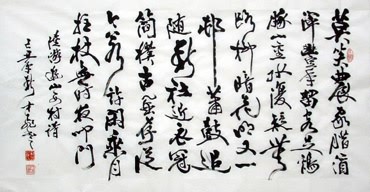 莫笑農家臘酒
渾豐年留客足鷄
豚山重水復疑無
路柳暗花明又一
村簫鼓追
随春社近衣冠
簡樸古風存從
今若許閑乘月
拄杖無時夜叩門
陸游遊山西村詩